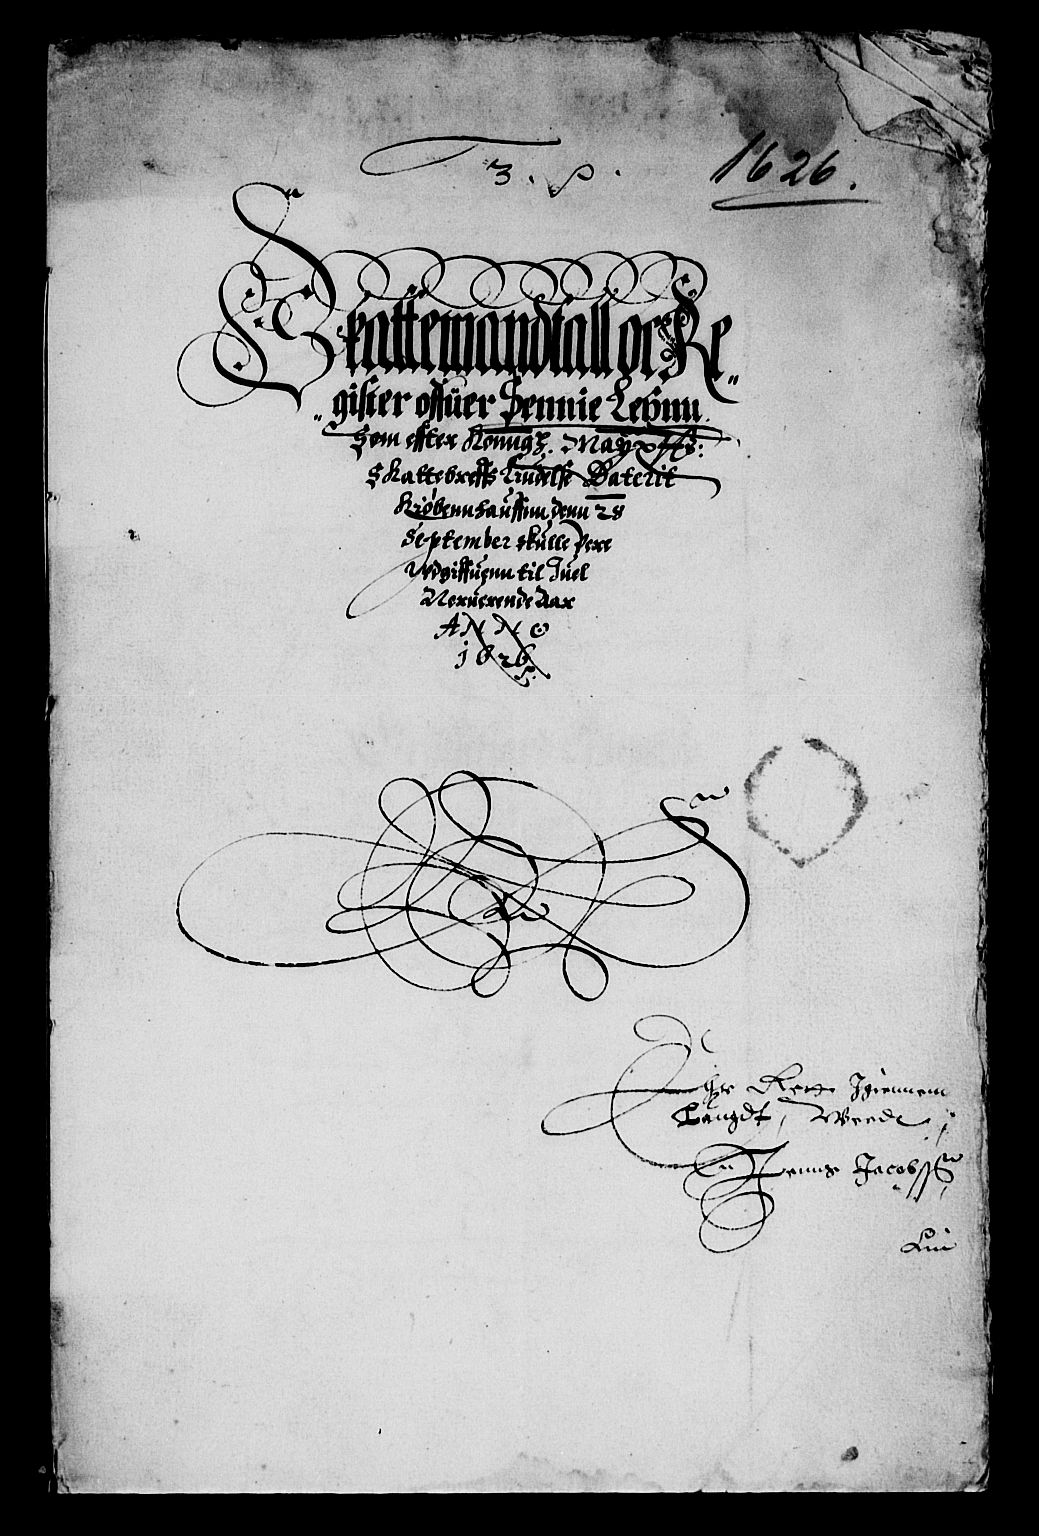 3. S.
1626.
Skattemandtall oc Re„
„gister offuer Dennie Lehnn
Som effter Konngh. Maytts:
Skattebreffs Liudelse Daterit
Kiøbennhauffnn denn 28
September skulle Vere
Vdgiffuenn til Juel
Neruerende Aar
ANNO
1626
Igiennem
Langdt, Werdt
Jenns Jacobss